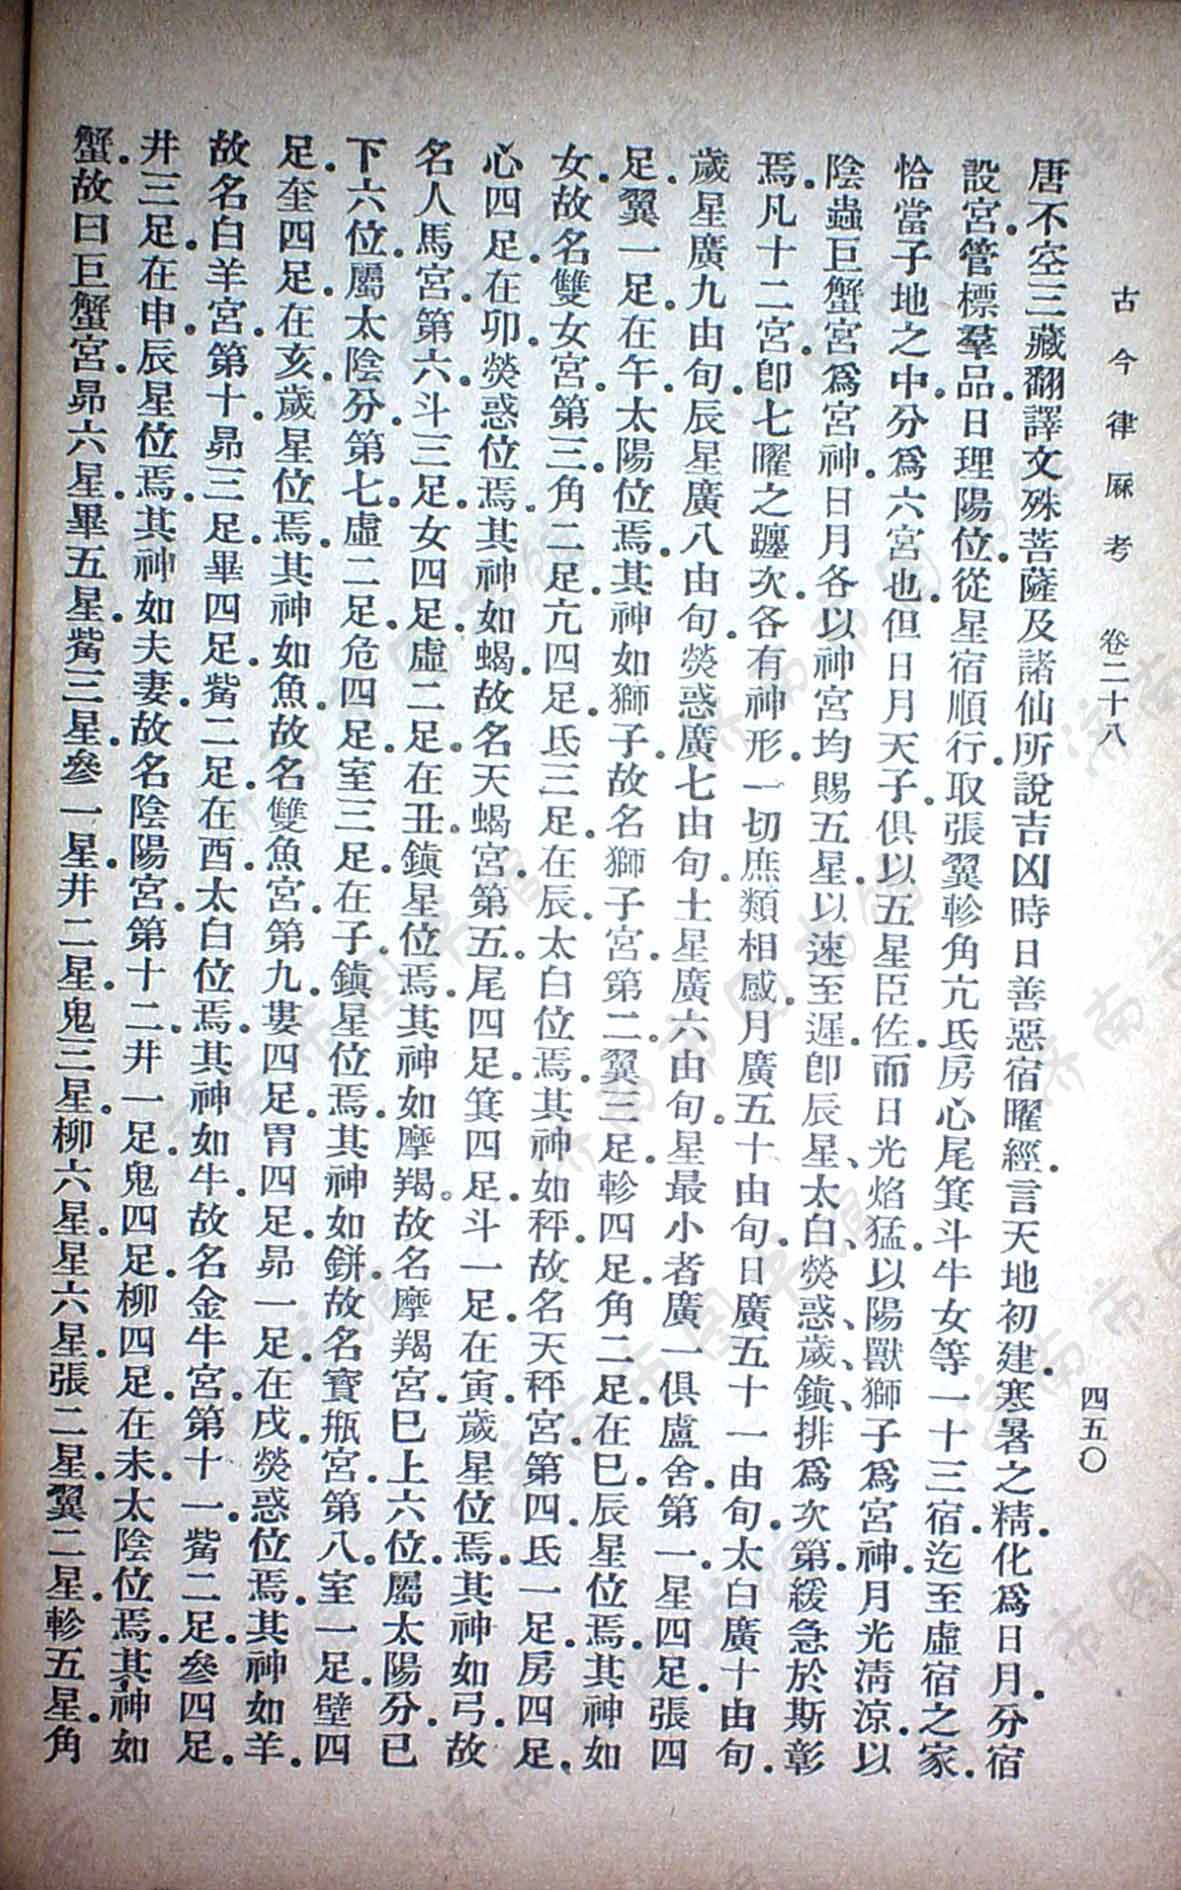 古今律厤考 卷二十八 四五〇
唐不空三藏翻譯文殊菩薩及諸仙所說吉凶時日善惡宿曜經.言天地初建.寒暑之精.化爲日月.分宿
設宮.管標羣品.日理陽位.從星宿順行.取張翼軫角亢氐房心尾箕斗牛女等一十三宿.迄至虛宿之
恰當子地之中.分爲六宮也.但日月天子.俱以五星臣佐.而日光焰猛.以陽獸獅子爲宮神.月光淸涼.以
陰蟲巨蟹宮爲宮神.日月各以神宮均賜五星.以速至遲.卽辰星、太白、熒惑、歲、鎭、排爲次第.緩急於斯彰
焉.凡十二宮卽七曜之躔次.各有神形.一切庶類相感.月廣五十由旬.日廣五十一由旬.太白廣十由旬.
歲星廣九由旬.辰星廣八由旬.熒惑廣七由旬.土星廣六由旬.星最小者廣一俱盧舍.第一.星四足.張四
足.翼一足.在午.太陽位焉.其神如獅子.故名獅子宮.第二.翼三足.軫四足.角二足.在巳.辰星位焉.其神如
女.故名雙女宮.第三.角二足.亢四足.氐三足.在辰.太白位焉.其神如秤.故名天秤宮.第四.氐一足.房四足.
心四足.在卯.熒惑位焉.其神如蝎.故名天蝎宮.第五.尾四足.箕四足.斗一足.在寅.歲星位焉.其神如弓.故
名人馬宮.第六.斗三足.女四足.虛二足.在丑.鎭星位焉.其神如摩羯.故名摩羯宮.已上六位.屬太陽分.已
下六位.屬太陰分.第七.虛二足.危四足.室三足.在子.鎭星位焉.其神如缾.故名寶瓶宮.第八.室一足.壁四
足.奎四足.在亥.歲星位焉.其神如魚.故名雙魚宮.第九.婁四足.胃四足.昴一足.在戌.熒惑位焉.其神如羊.
故名白羊宮.第十.昴三足.畢四足.觜二足.在酉.太白位焉.其神如牛.故名金牛宮.第十一.觜二足.參四足.
井三足.在申.辰星位焉.其神如夫妻.故名陰陽宮.第十二.井一足.鬼四足.柳四足.在未.太陰位焉.其神如
蟹.故曰巨蟹宮.昴六星.畢五星.觜三星.參一星.井二星.鬼三星.柳六星.星六星.張二星.翼二星.軫五星.角